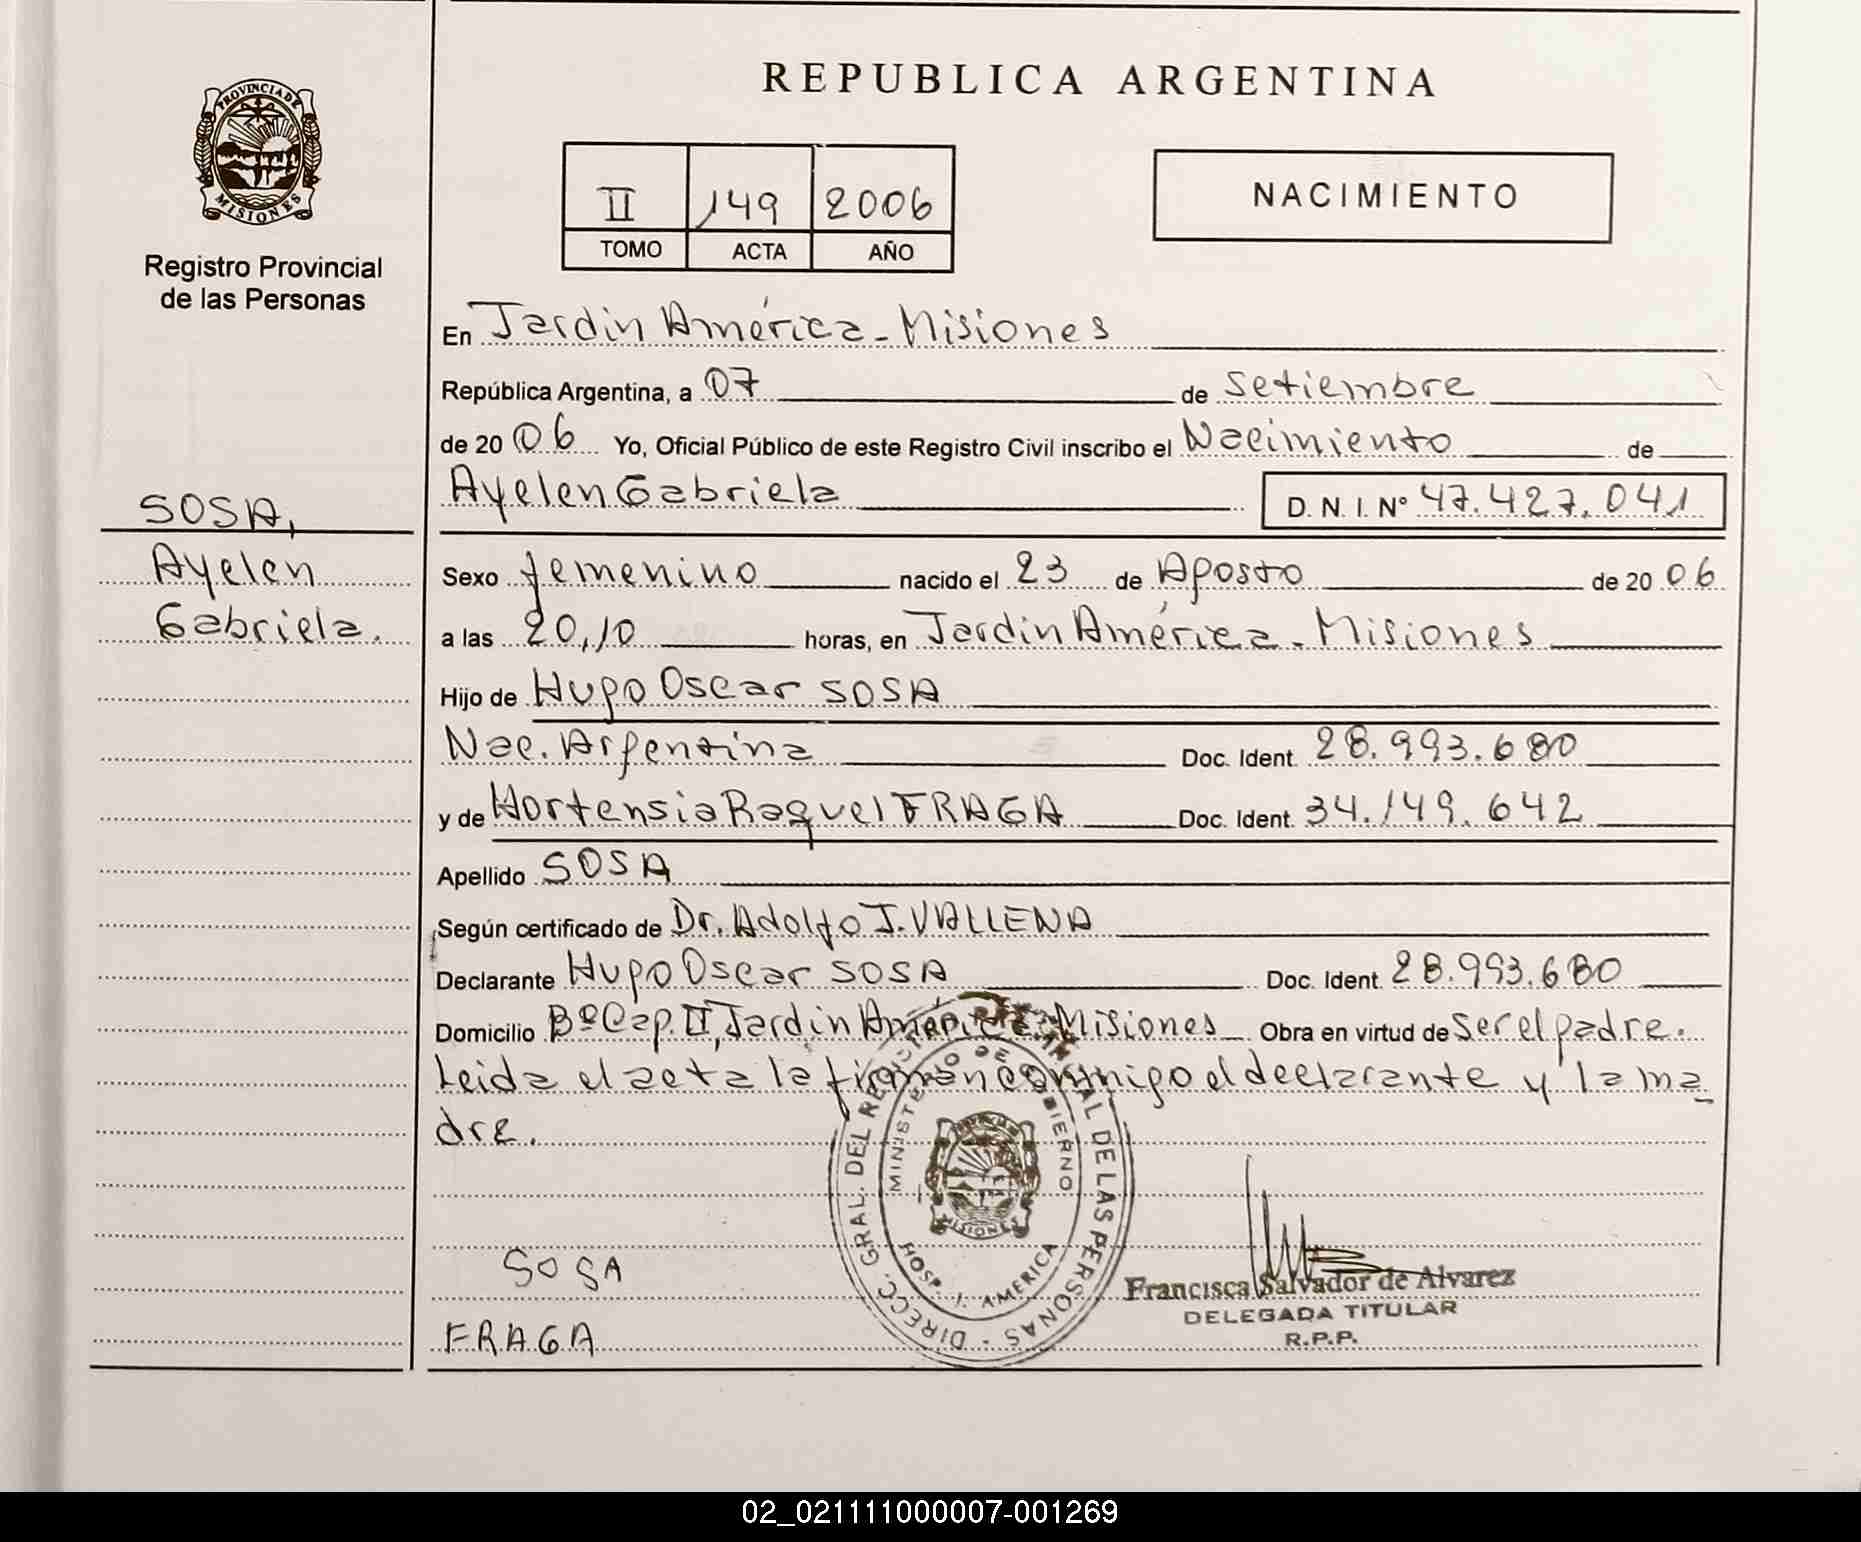 PROVINCIA DE
MISIONES
Registro Provincial
de las Personas
SOSA,
Ayelen
Gabriela.
REPUBLICA ARGENTINA
II 149 2006
TOMO ACTA AÑO
NACIMIENTO
En Jardín América - Misiones
República Argentina, a 07 de Setiembre
de 2006 Yo, Oficial Público de este Registro Civil inscribo el Nacimiento de
Ayelen Gabriela D. N. I. Nº 47.427.041
Sexo femenino nacido el 23 de Agosto de 2006
a las 20,10 horas, en Jardín América - Misiones
Hijo de Hugo Oscar SOSA
Nac. Argentina Doc. Ident. 28.993.680
y de Hortensia Raquel FRAGA Doc. Ident. 34.149.642
Apellido SOSA
Según certificado de Dr. Adolfo J. VALLENA
Declarante Hugo Oscar SOSA Doc. Ident. 28.993.680
Domicilio Bº Cap. II, Jardín América - Misiones Obra en virtud de Ser el padre.
Leida el acta la firman conmigo el declarante y la ma
dre.
DIRECC. GRAL. DEL REGISTRO PROVINCIAL DE LAS PERSONAS -
MINISTERIO DE GOBIERNO
MISIONES
HOSP. J. AMERICA
SOSA
FRAGA
Francisca Salvador de Alvarez
DELEGADA TITULAR
R.P.P.
02_021111000007-001269